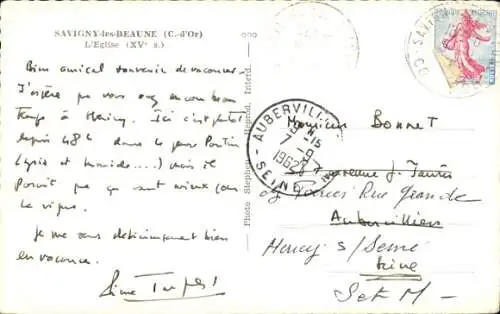 SAVIGNY-les-BEAUNE (C.-d'Or)
L'Eglise (XVe s.)
Bien amical souvenir de vacances
J'espère que vous avez encore bon
temps à Héricy. Ici c'est plutôt
depuis 48 h dans le genre
(gris et humide...) mais il
Paraît que ça vaut mieux pour
la vigne.
Je me sens définitivement bien
en vacances.
Photo Stephen Reprod. Interd.
AUBERVILLIERS
15
7 - 9
1962
SEINE
Monsieur Bonnet
Avenue J. Jaurès
Rue Grande
Aubervilliers
Héricy s/ Seine
Seine
Set M -